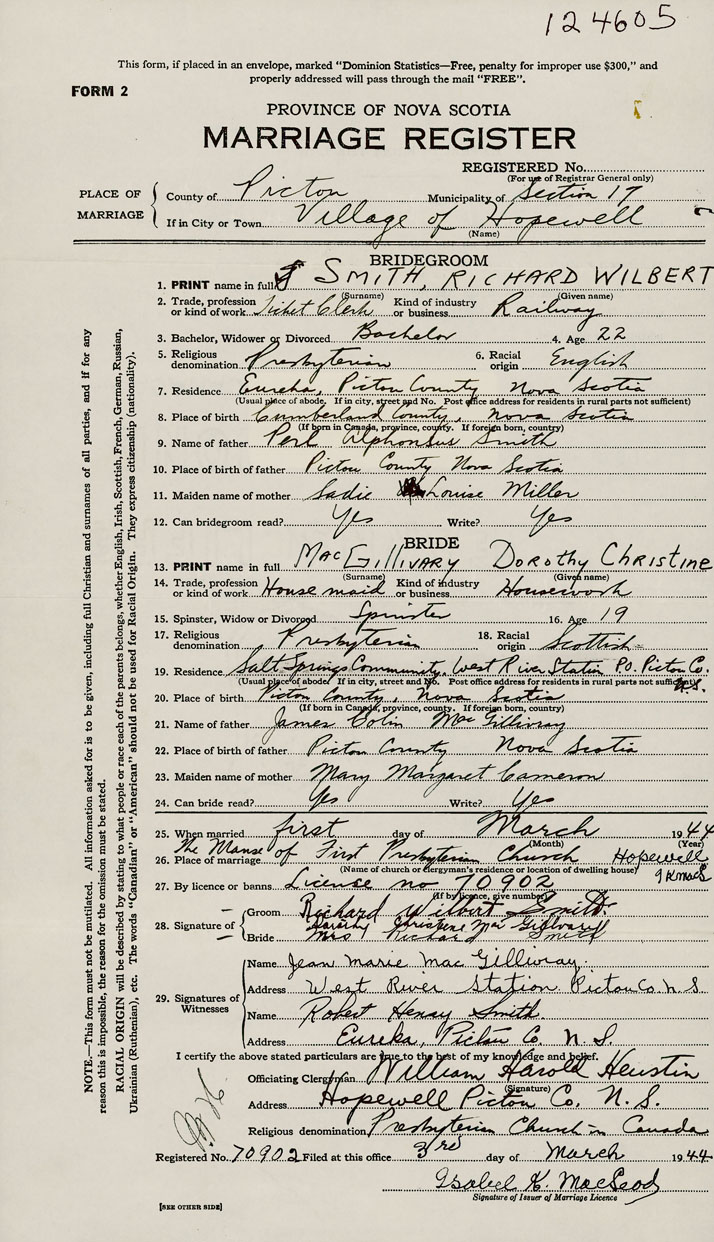 124605
This form, if placed in an envelope, marked "Dominion Statistics—Free, penalty for improper use $300," and
properly addressed will pass through the mail "FREE".
FORM 2
PROVINCE OF NOVA SCOTIA
MARRIAGE REGISTER
REGISTERED No.
(For use of Registrar General only)
PLACE OF MARRIAGE
County of Pictou Municipality of Section 17
If in City or Town Village of Hopewell
(Name)
BRIDEGROOM
1. PRINT name in full SMITH, RICHARD WILBERT
(Surname) (Given name)
2. Trade, profession or kind of work Ticket Clerk Kind of industry or business Railway
3. Bachelor, Widower or Divorced Bachelor 4. Age 22
5. Religious denomination Presbyterian 6. Racial origin English
7. Residence Eureka, Pictou County Nova Scotia
(Usual place of abode. If in city, street and No. Post office address for residents in rural parts not sufficient)
8. Place of birth Cumberland County, Nova Scotia
(If born in Canada, province, county. If foreign born, country)
9. Name of father Perl Alphonsus Smith
10. Place of birth of father Pictou County Nova Scotia
11. Maiden name of mother Sadie Louise Miller
12. Can bridegroom read? Yes Write? Yes
BRIDE
13. PRINT name in full MacGillivary Dorothy Christine
(Surname) (Given name)
14. Trade, profession or kind of work House maid Kind of industry or business Housework
15. Spinster, Widow or Divorced Spinster 16. Age 19
17. Religious denomination Presbyterian 18. Racial origin Scottish
19. Residence Salt Springs Community, West River Station PO. Pictou Co. N.S.
(Usual place of abode. If in city, street and No. Post office address for residents in rural parts not sufficient)
20. Place of birth Pictou County, Nova Scotia
(If born in Canada, province, county. If foreign born, country)
21. Name of father James Colin MacGillivray
22. Place of birth of father Pictou County Nova Scotia
23. Maiden name of mother Mary Margaret Cameron
24. Can bride read? Yes Write? Yes
25. When married first day of March 1944
(Month) (Year)
26. Place of marriage The Manse of First Presbyterian Church Hopewell
(Name of church or clergyman's residence or location of dwelling house)
27. By licence or banns License no 70902
(If by licence, give number)
28. Signature of
Groom Richard Wilbert Smith
Bride Dorothy Christene Mac Gillivary
Mrs Richard Smith
29. Signatures of Witnesses
Name Jean Marie MacGillivray
Address West River Station Pictou Co N S
Name Robert Henry Smith
Address Eureka, Pictou Co. N. S.
I certify the above stated particulars are true to the best of my knowledge and belief.
Officiating Clergyman William Harold Heustin
(Signature)
Address Hopewell Pictou Co. N. S.
Religious denomination Presbyterian Church in Canada
Registered No. 70902 Filed at this office 3rd day of March 1944
Isabel K. MacLeod
Signature of Issuer of Marriage Licence
[SEE OTHER SIDE]
NOTE.—This form must not be mutilated. All information asked for is to be given, including full Christian and surnames of all parties, and if for any
reason this is impossible, the reason for the omission must be stated.
RACIAL ORIGIN will be described by stating to what people or race each of the parents belongs, whether English, Irish, Scottish, French, German, Russian,
Ukrainian (Ruthenian), etc. The words "Canadian" or "American" should not be used for Racial Origin. They express citizenship (nationality).